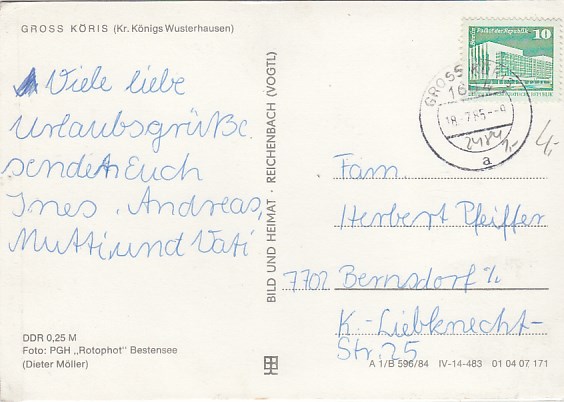 GROSS KÖRIS (Kr. Königs Wusterhausen)
Viele liebe
Urlaubsgrüße
sendet Euch
Ines, Andreas,
Mutti und Vati
DDR 0,25 M
Foto: PGH „Rotophot" Bestensee
(Dieter Möller)
BILD UND HEIMAT · REICHENBACH (VOGTL)
Berlin Palast der Republik
10
GROSS KÖRIS
18.-7.85.--9
a
Fam
Herbert Pfeiffer
7702 Bernsdorf
K.-Liebknecht-
Str. 25
A 1/B 596/84 IV-14-483 01 04 07 171
4,-